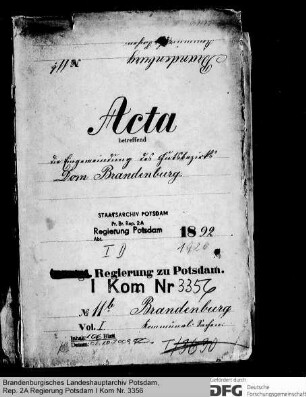 Brandenburg
№ 11b
Acta
betreffend
die Eingemeindung des Gutsbezirks
Dom Brandenburg.
STAATSARCHIV POTSDAM
Pr. Br. Rep. 2A
Regierung Potsdam
Abt.
I D
1892
1920
Regierung zu Potsdam.
I Kom Nr. 3356
№ 11b Brandenburg
Vol. I
Kommunal-Sachen
Brandenburgisches Landeshauptarchiv Potsdam,
Rep. 2A Regierung Potsdam I Kom Nr. 3356
Gefördert durch
DFG Deutsche
Forschungsgemeinschaft